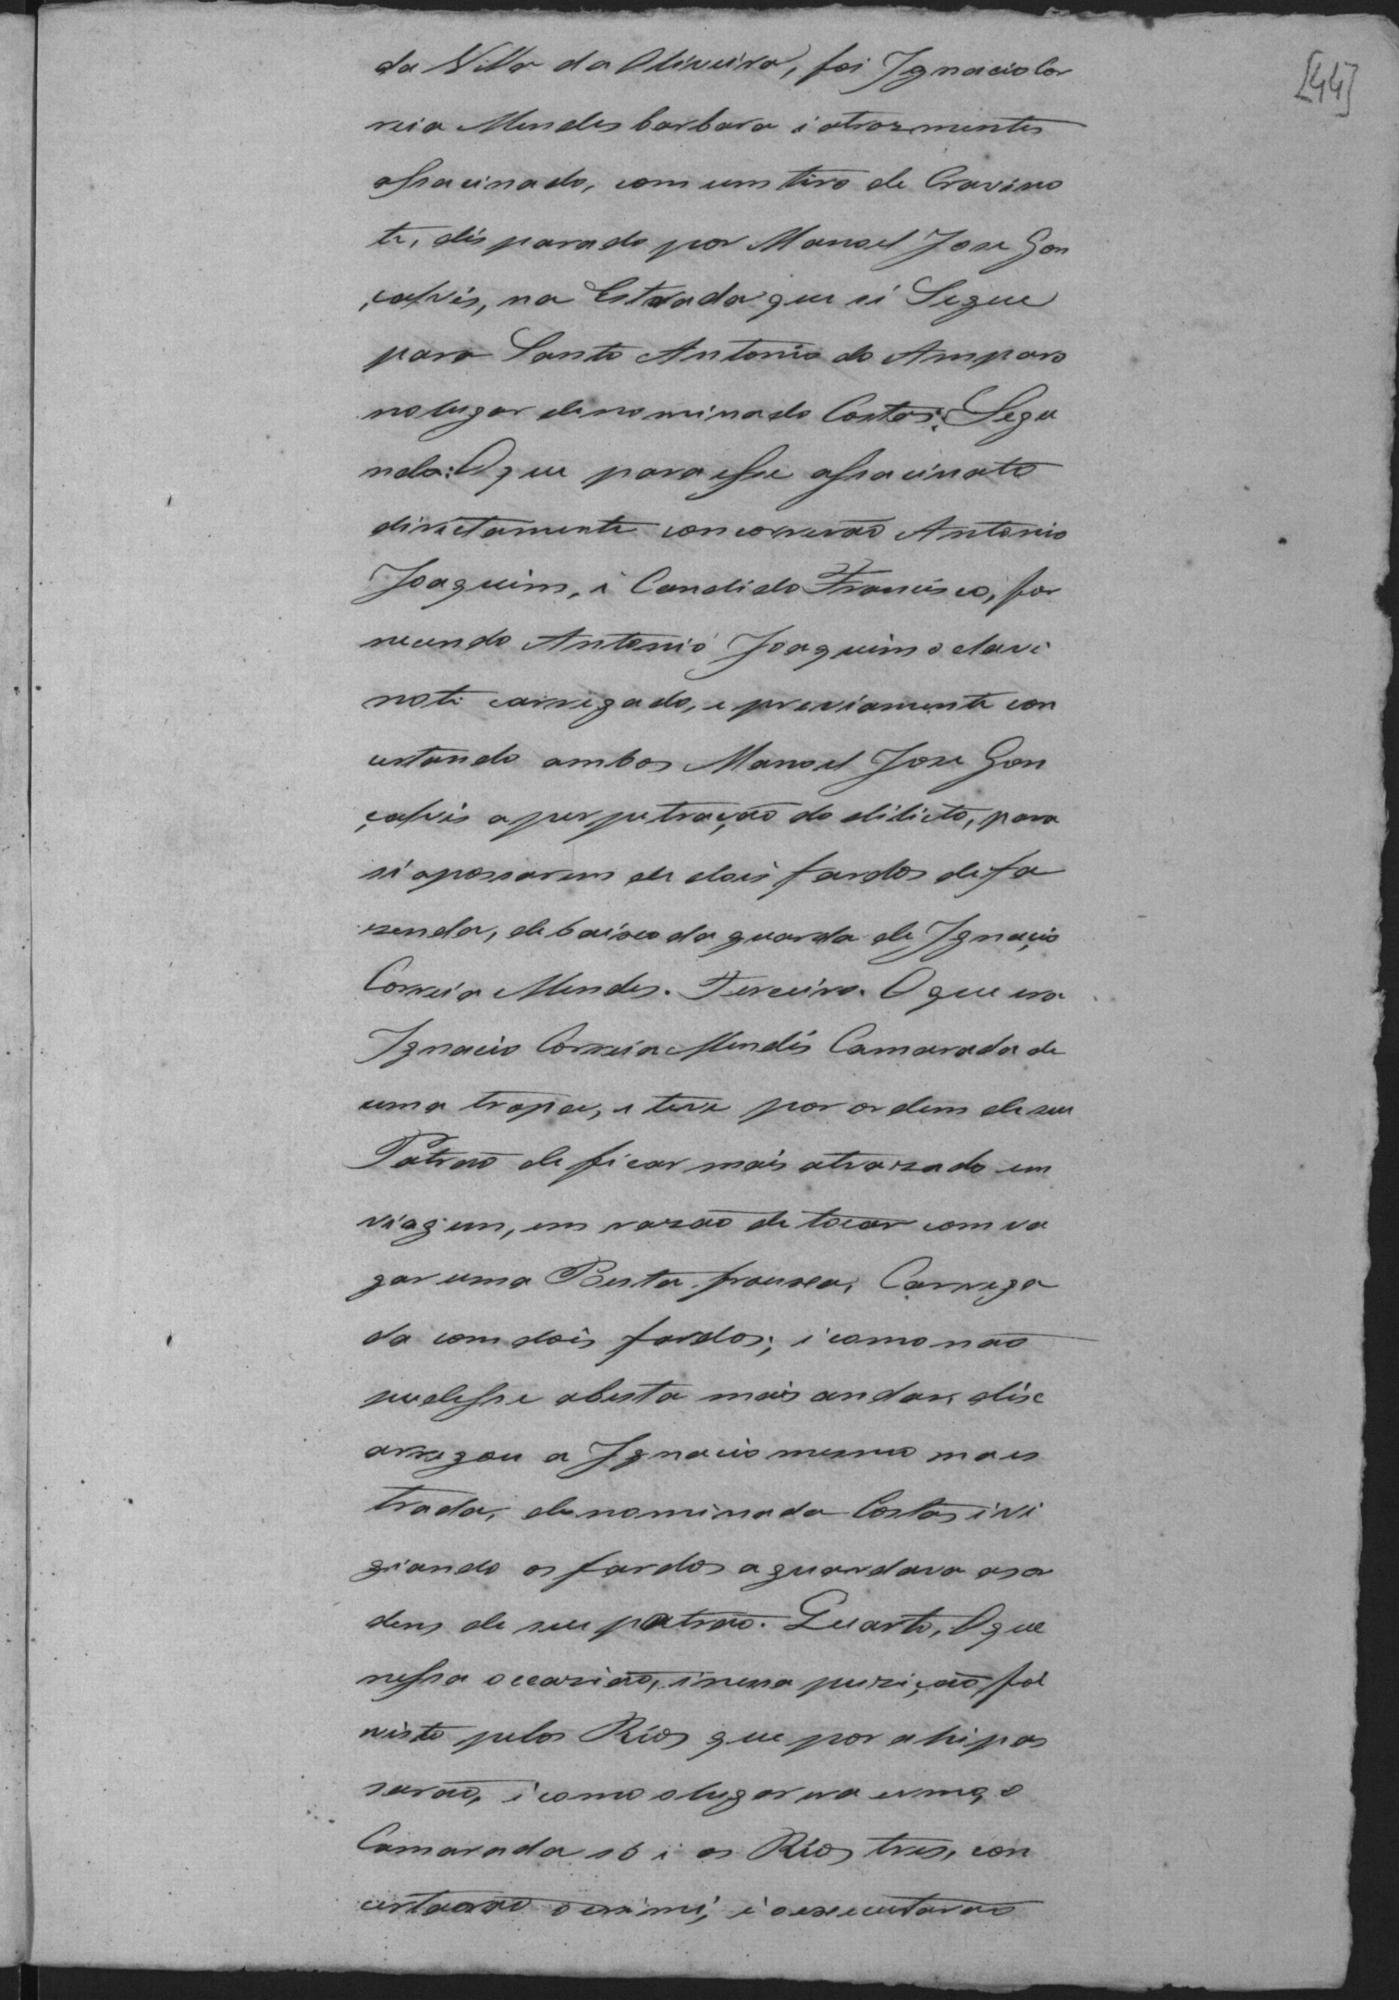 [44]
da Villa da Oliveira, foi Ignacio Cor
reia Mendes barbara i atrozmente
assacinado, com um tiro de Cravino
te, disparado por Manoel Jose Gon
çalvis, na Estrada que si Segue
para Santo Antonio do Amparo
no lugar denominado Costas; Segu
ndo: O que para esse assacinato
directamente concorrerão Antonio
Joaquim, i Candido Francisco, for
necendo Antonio Joaquim o clavi
noti carregado, e previamente con
certando ambos Manoel Jose Gon
çalvis a perpetração do dilicto, para
si apossarem de dois fardos de fa
zenda, debaixo da guarda de Ignacio
Correia Mendes. Terceiro. O que era
Ignacio Correia Mendis Camarada de
uma tropa, e teve por ordem de seu
Patrão de ficar mais atrazado em
viagem, em razão de tocar com va
gar uma Besta frouxa, Carrega
da com dois fardos; i como não
pudesse a besta mais andar, disc
arregou a Ignacio mesmo na es
trada, denominada Costas i vi
giando os fardos aguardava as or
dens de seu patrão. Quarto, O que
nessa occazião, i nessa puzição foi
visto pelos Réos que por ahi pas
sarão, i como o lugar era ermo, o
Camarada só i os Réos tres, con
certarão o crime, i o executarão